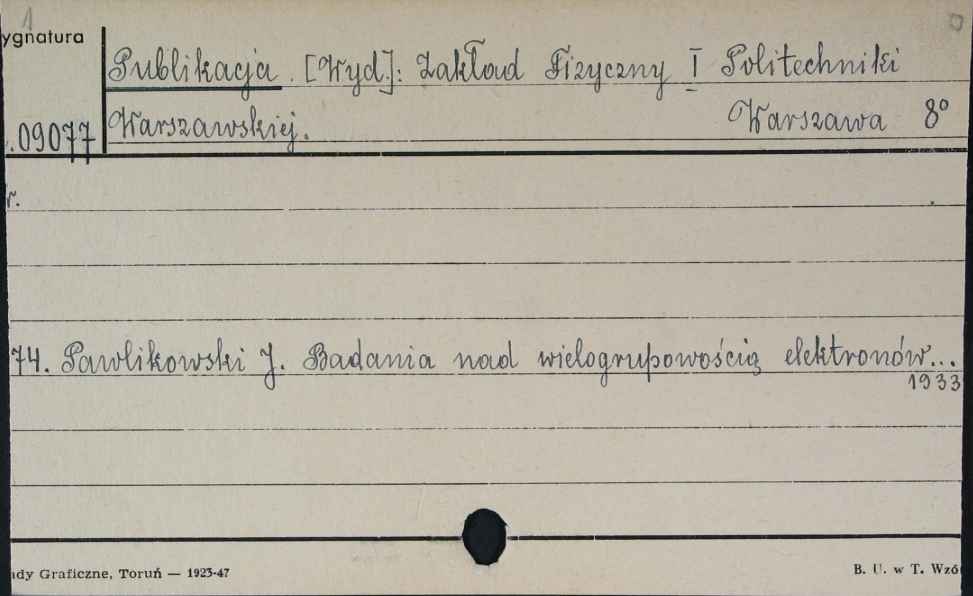 1
ygnatura
Publikacja. [Wyd.]: Zakład Fizyczny I Politechniki
.09077 Warszawskiej. Warszawa 8°
r.
74. Pawlikowski J. Badania nad wielogrupowością elektronów...
1933
dy Graficzne, Toruń — 1923-47
B. U. w T. Wzó